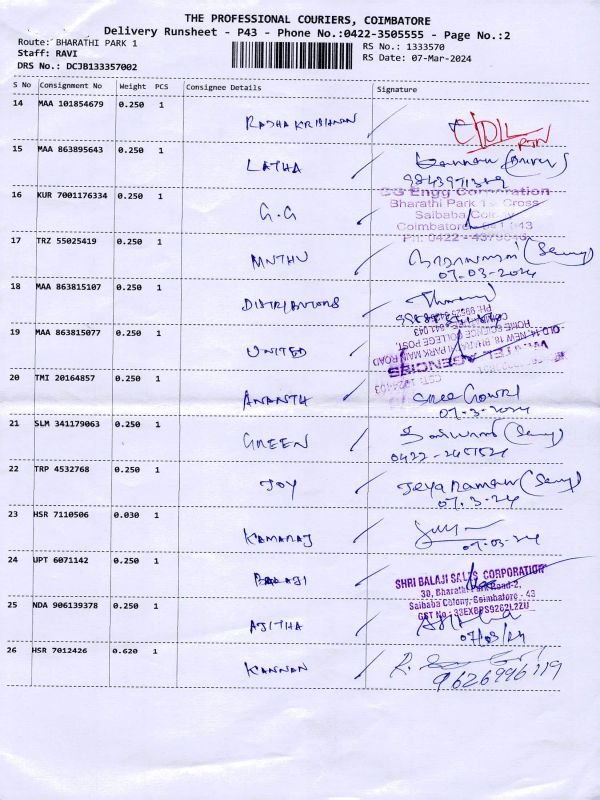 THE PROFESSIONAL COURIERS, COIMBATORE
Delivery Runsheet - P43 - Phone No.:0422-3505555 - Page No.:2
Route: BHARATHI PARK 1
RS No.: 1333570
Staff: RAVI
RS Date: 07-Mar-2024
DRS No.: DCJB133357002
S No Consignment No Weight PCS Consignee Details Signature
14 MAA 101854679 0.250 1
RADHA KRISHNAN
RTN
15 MAA 863895643 0.250 1
LATHA
16 KUR 7001176334 0.250 1
G.G
CG Engg Corporation
Bharathi Park 1st Cross
Saibaba Colony
Coimbatore
17 TRZ 55025419 0.250 1
MUTHU
07-03-2024
18 MAA 863815107 0.250 1
DISTRIBUTIONS
19 MAA 863815077 0.250 1
UNITED
OLD.14, NEW 18 BHARATHI PARK MAIN ROAD
HOME SCIENCE COLLEGE POST,
AGENCIES
20 TMI 20164857 0.250 1
ANANTH
Sree Gowri
07-3-2024
21 SLM 341179063 0.250 1
GREEN
22 TRP 4532768 0.250 1
JOY
Jeya Raman
07.3.24
23 HSR 7110506 0.030 1
KAMARAJ
07-03-24
24 UPT 6071142 0.250 1
BALAJI
SHRI BALAJI SALES CORPORATION
30, Bharathi Park Road-2,
Saibaba Colony, Coimbatore - 43
25 NDA 906139378 0.250 1
AJITHA
07/03/24
26 HSR 7012426 0.620 1
KANNAN
9626996119